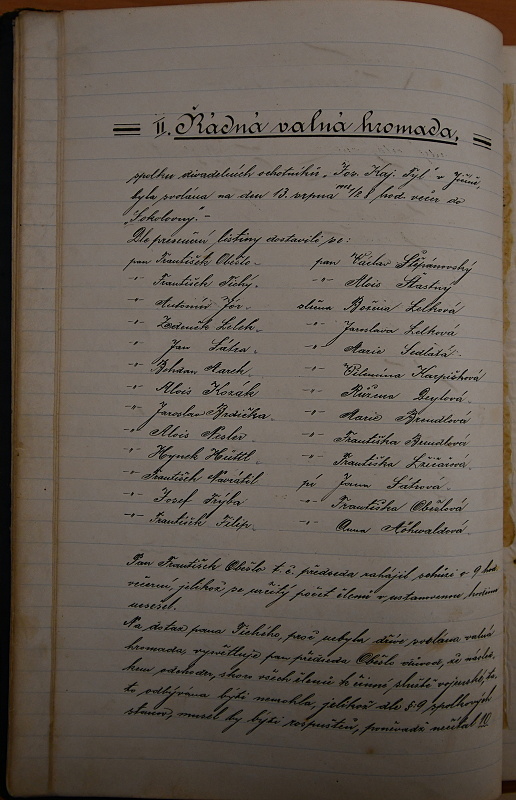 II. Řádná valná hromada,
spolku divadelních ochotníků „Jos. Kaj. Tyl" v Jičíně,
byla svolána na den 13. srpna 1/2 8 hod. večer do
„Sokolovny".-
Dle presenční listiny dostavili se:
pan František Obešlo- pan Václav Štěpánovský
-"- František Tichý.- -"- Alois Šťastný
-"- Antonín Jor.- slečna Božena Lelková
-"- Zdeněk Lelek.- -"- Jaroslava Lelková
-"- Jan Šátra.- -"- Marie Sedlatá.-
-"- Bohdan Marek.- -"- Vilemína Karpíšková
-"- Alois Kozák -"- Růžena Deylová
-"- Jaroslav Brdička.- -"- Marie Brendlová
-"- Alois Nesler -"- Františka Brendlová
-"- Hynek Hüttl.- -"- Františka
-"- František Navrátil pí Jana Šátrová.-
-"- Josef Trýba -"- Františka Obešlová
-"- František Filip.- -"- Anna Röhwaldová.-
Pan František Obešlo t. č. předseda zahájil schůzi v 9 hod.
večerní, jelikož se určitý počet členů v ustanovenou hodinu
nesešel.
Na dotaz pana Tichého, proč nebyla dříve svolána valná
hromada, vysvětluje pan předseda Obešlo důvod, že následkem
odchodu, skoro všech členů k činné službě vojenské, ta-
to odbývána býti nemohla, jelikož dle § 9 spolkových
stanov, musel by býti rozpuštěn, poněvadž nečítal 10.